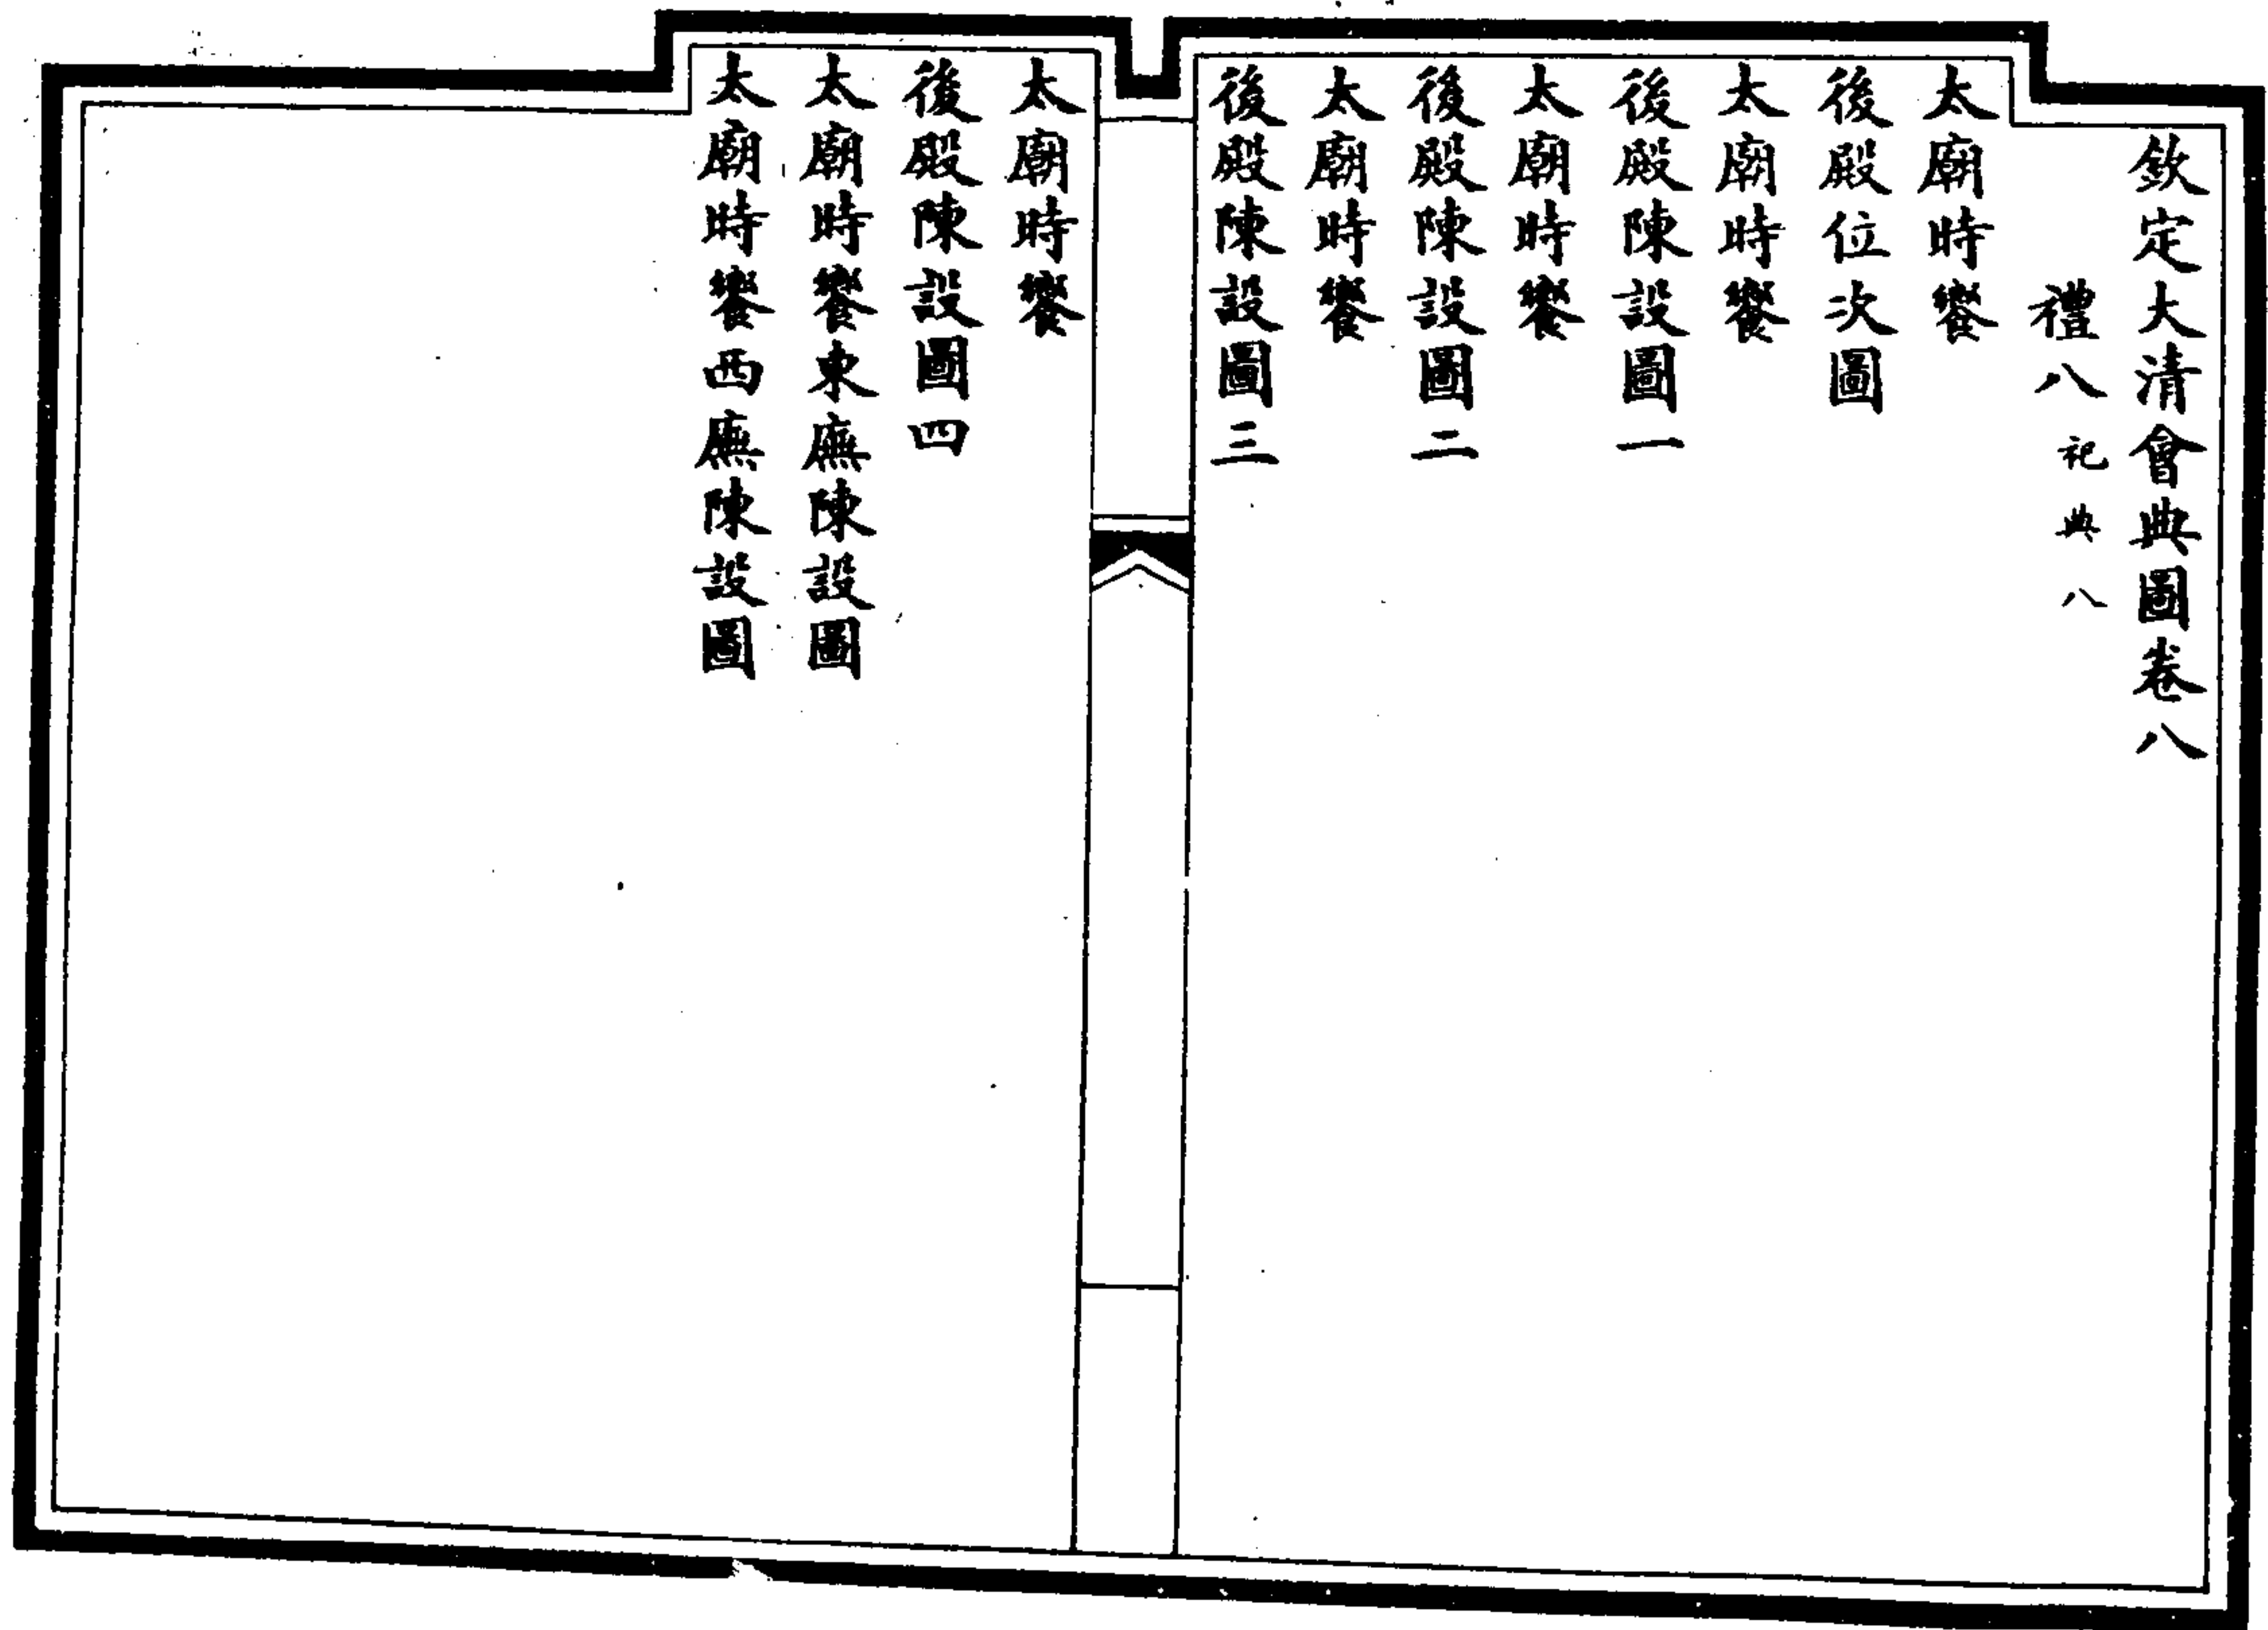 欽定大清會典圖卷八
禮八 祀典八
太廟時饗
後殿位次圖
太廟時饗
後殿陳設圖一
太廟時饗
後殿陳設圖二
太廟時饗
後殿陳設圖三
太廟時饗
後殿陳設圖四
太廟時饗東廡陳設圖
太廟時饗西廡陳設圖